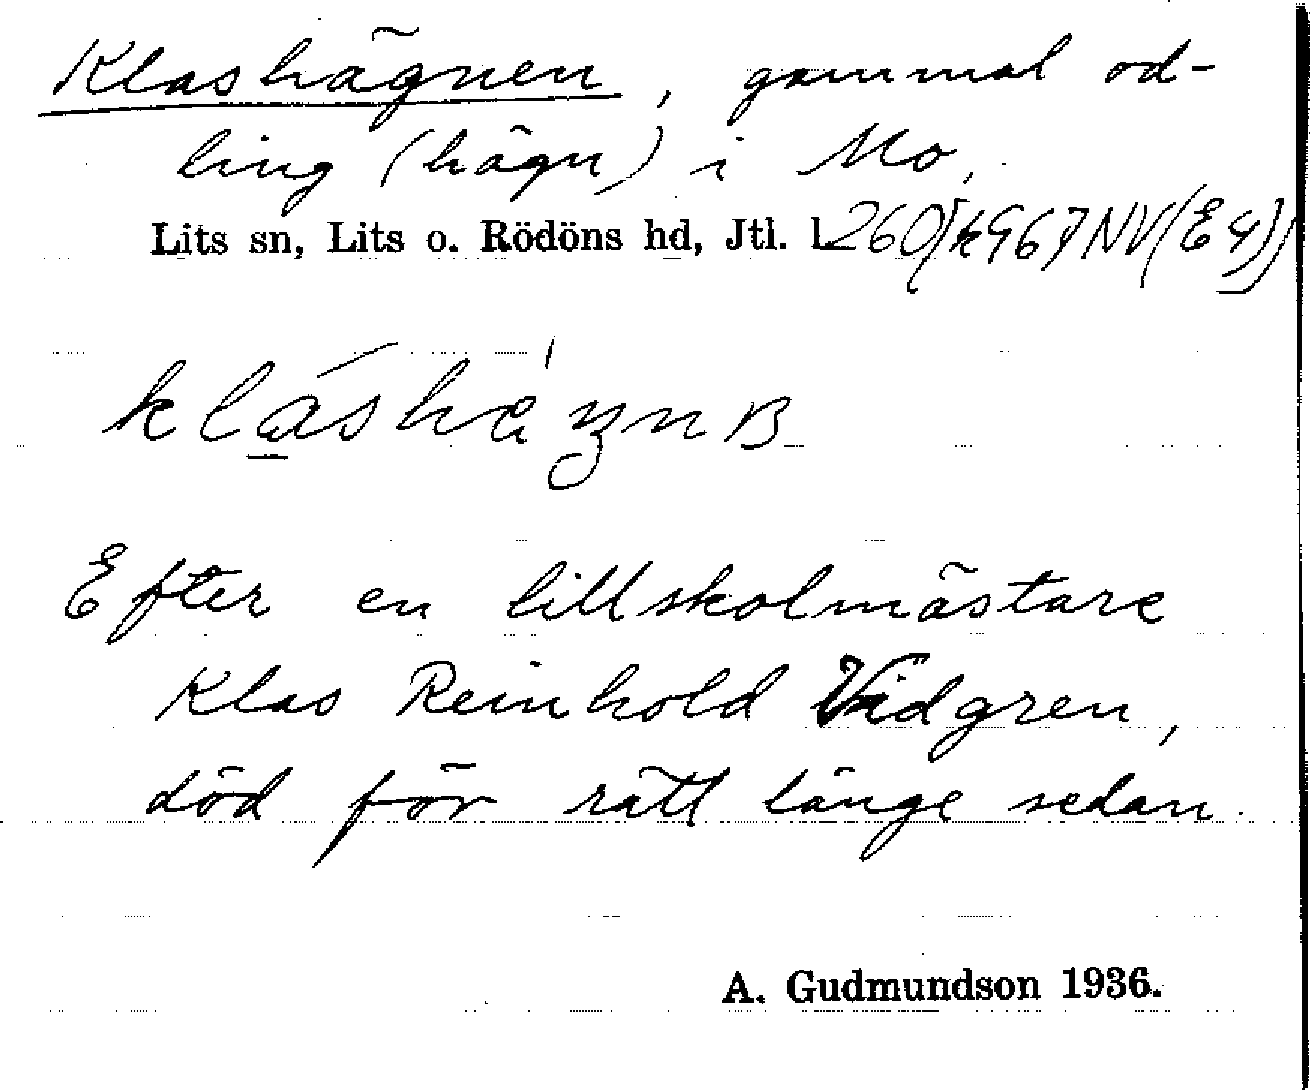 Klashägnen, gammal od-
ling (hägn) i Mo.
Lits sn, Lits o. Rödöns hd, Jtl. l.
Efter en lillskolmästare
Klas Reinhold Vidgren,
död för rätt länge sedan.
A. Gudmundson 1936.